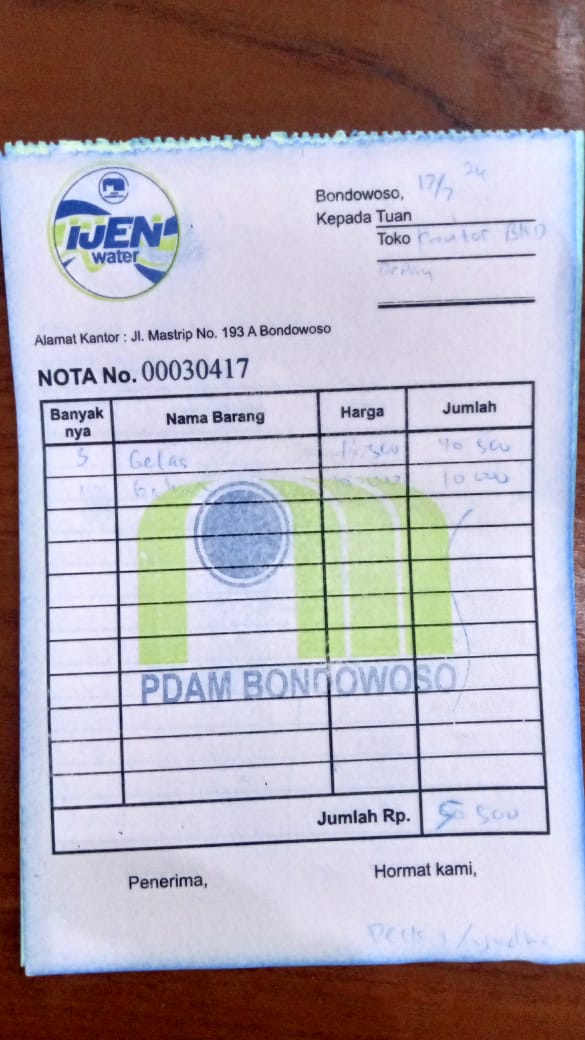 IJEN
water
Bondowoso, 17/7 24
Kepada Tuan
Toko Kantor BKD
Depan
Alamat Kantor : Jl. Mastrip No. 193 A Bondowoso
NOTA No. 00030417
Banyak nya Nama Barang Harga Jumlah
3 Gelas 13.500 40 500
1 10 000 10 000
PDAM BONDOWOSO
Jumlah Rp. 50 500
Penerima, Hormat kami,